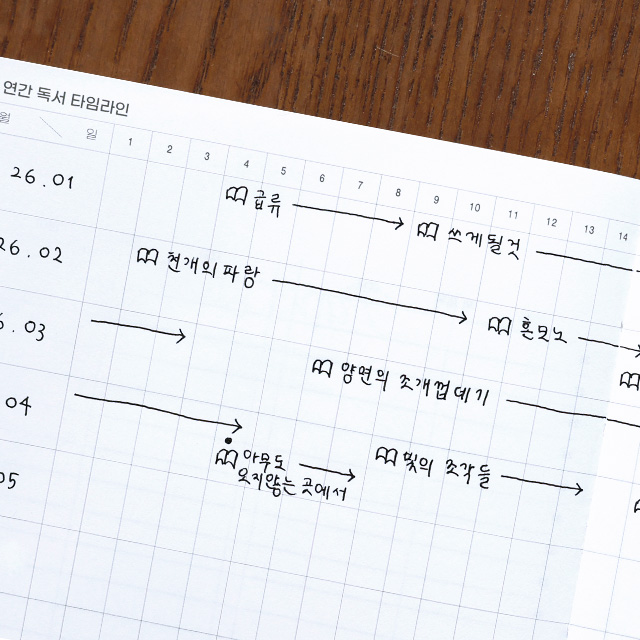 연간 독서 타임라인
월 일 1 2 3 4 5 6 7 8 9 10 11 12 13 14
26.01 급류 쓰게될것
26.02 천개의 파랑 혼모노
6.03 양면의 조개껍데기
04 아무도 오지않는 곳에서 빛의 조각들
05